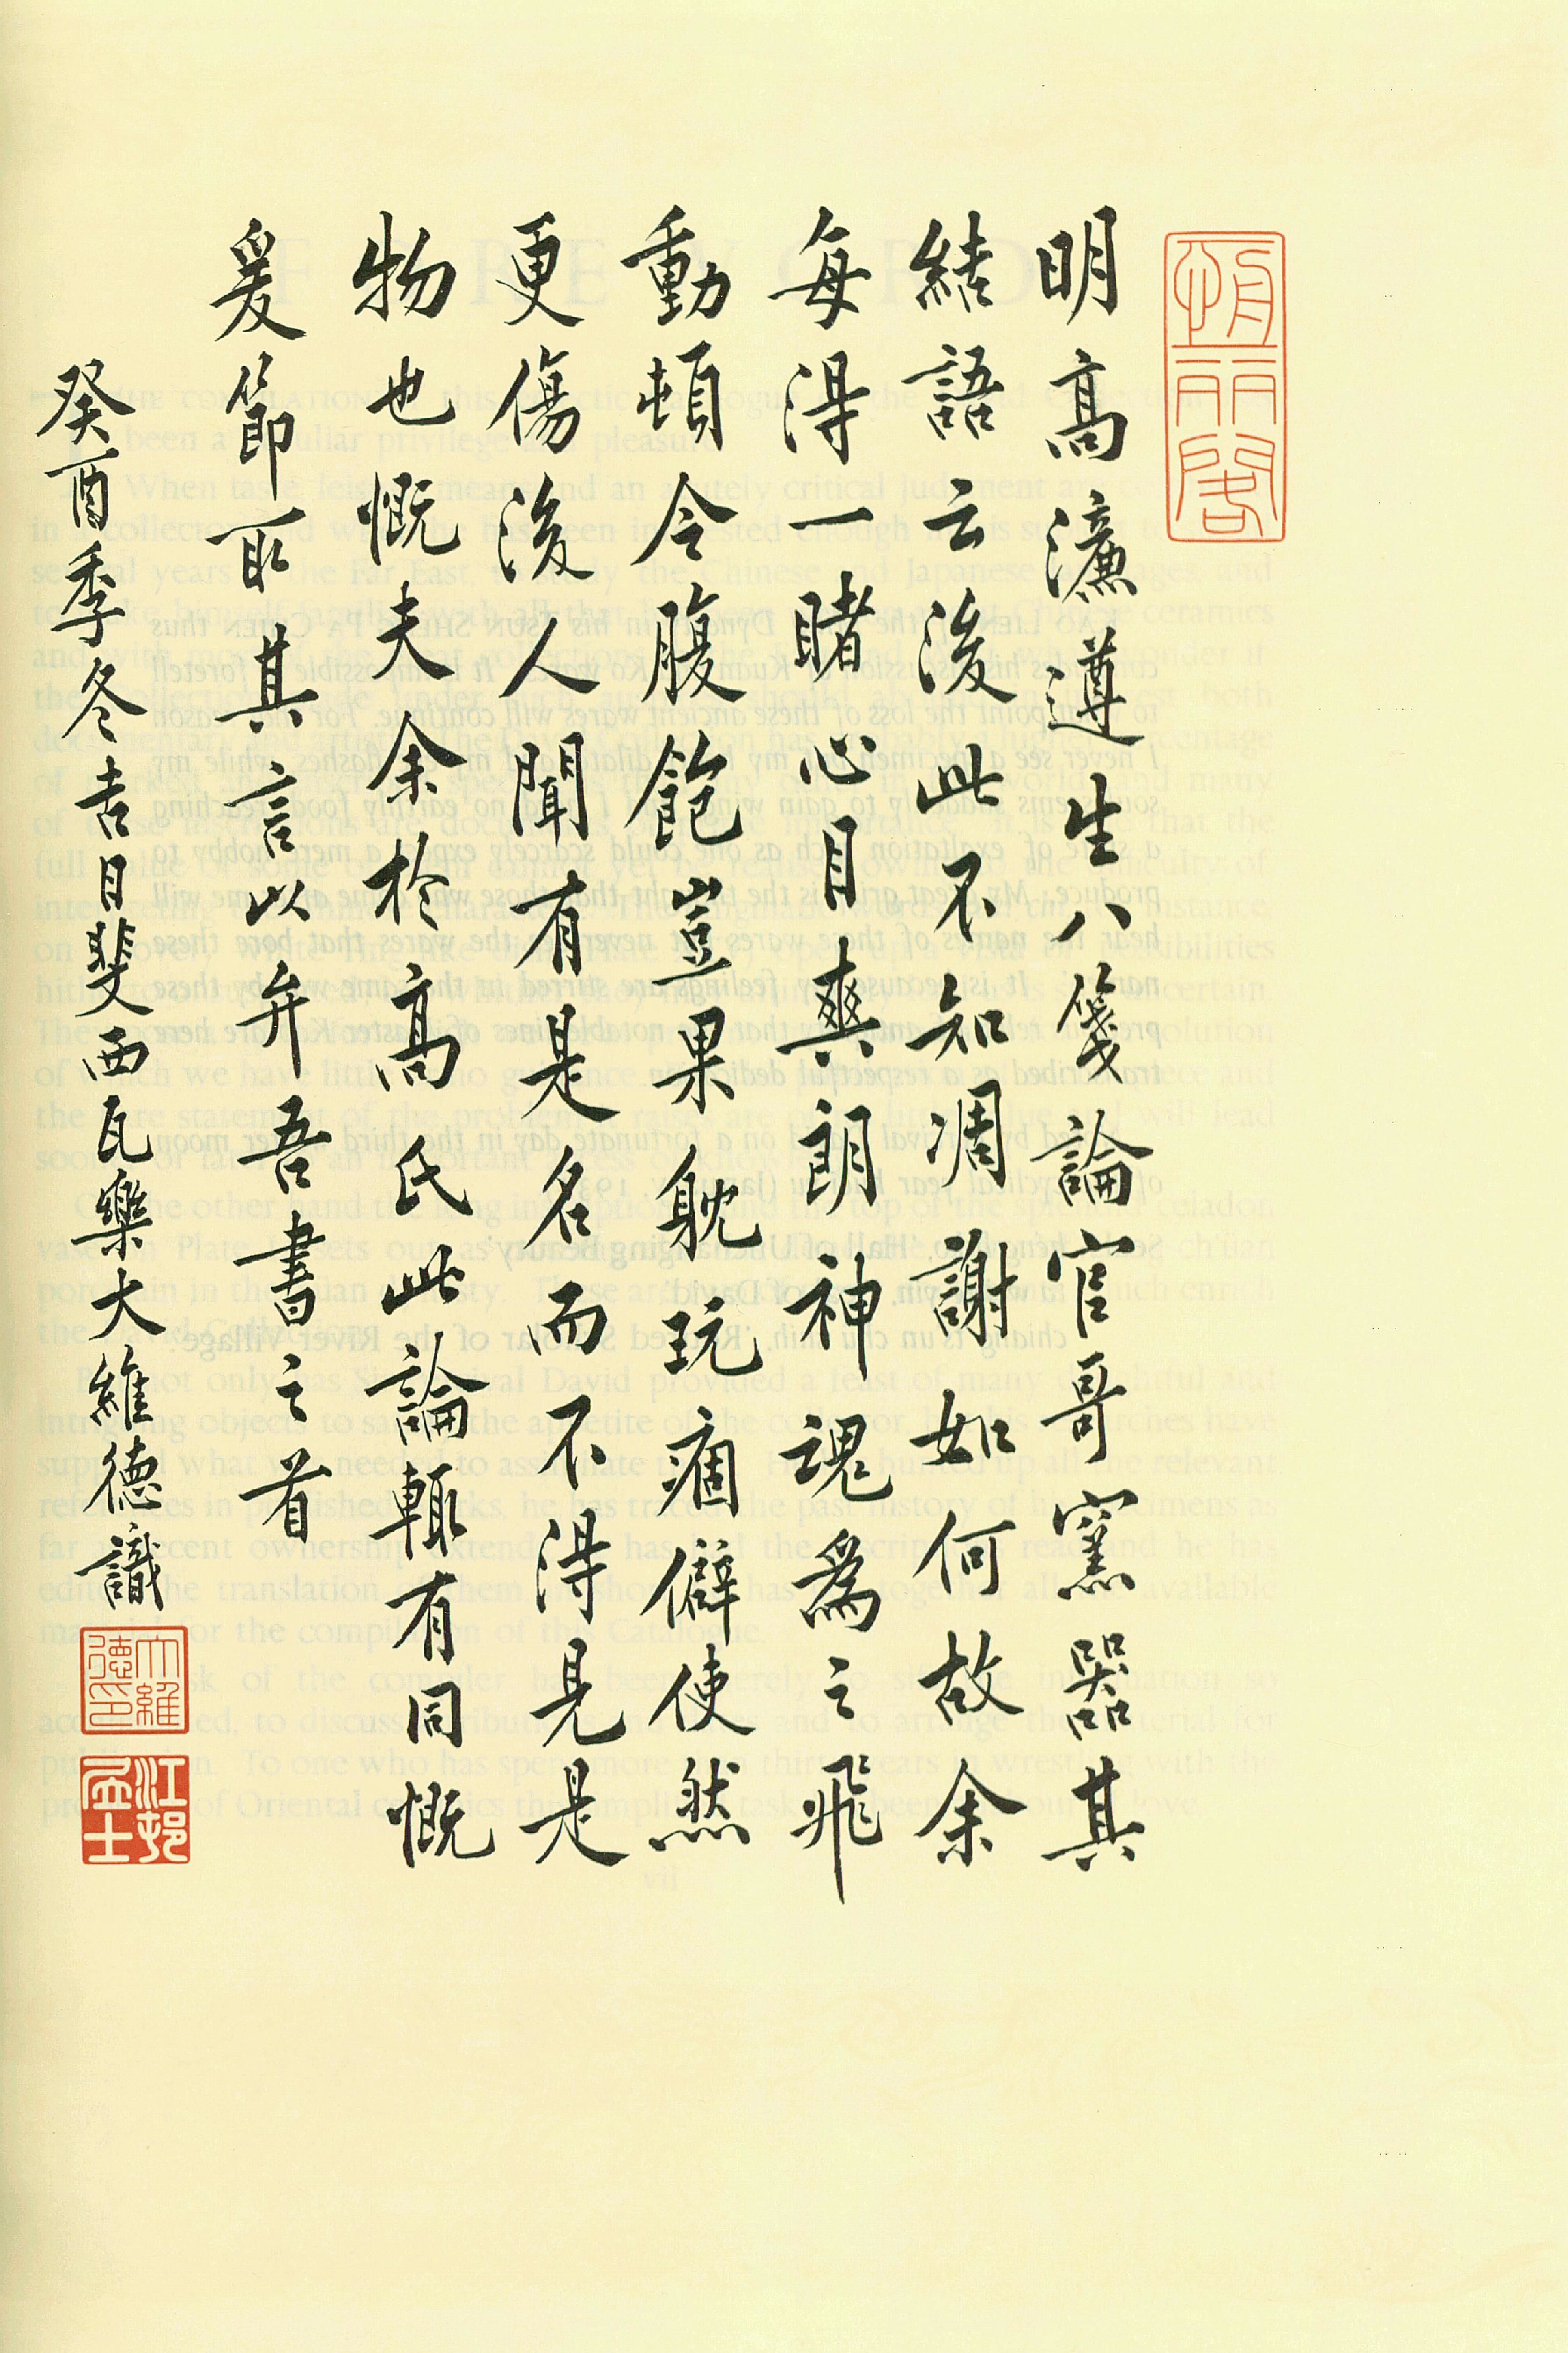 明高濂遵生八箋論官哥窯器其
結語云後此不知凋謝如何故余
每得一睹心目爽朗神魂為之飛
動頓令腹飽豈果躭玩痼僻使然
更傷後人聞有是名而不得見是
物也慨夫余於高氏此論輒有同慨
爰節取其言以弁吾書之首
癸酉季冬吉日斐西瓦樂大維德識
大維德印
江邨
士